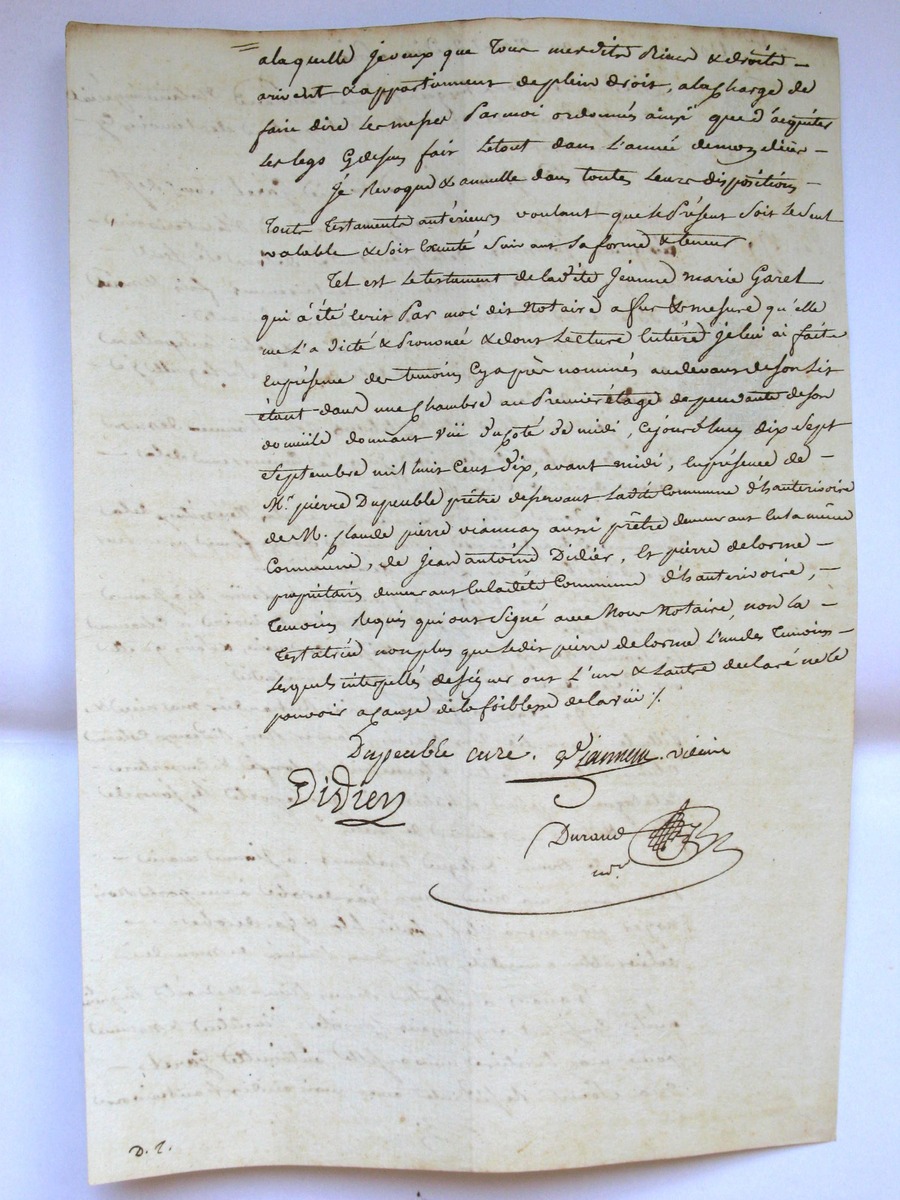 alaquelle jeveux que Tous mesdits Biens & droits —
arrivent & appartiennent deplein droit, alacharge de
faire dire les messes Parmoi ordonnés ainsi que d'acquiter
les legs Cydessus fait letout dans l'année demon décès —
Je Revoque & annulle dans toutes leurs dispositions —
Touts Testaments antérieurs voulant que le Présent soit leseul
valable & soit Exécuté Suivant Sa forme & teneur.
Tel est le testament de ladite jéanne marie Garel
qui à été Ecrit Par moi dit Notaire a fur & mesure qu'elle
me l'a dicté & Prononcé & dont Lecture Entière jelui ai faite
Enprésence des temoins Cyaprès nommés audevant deson Lit
étant dans une Chambre au Premier étage dependante deson
domicile donnant vüe ducoté de midi, Cejourd'huy dix Sept
Septembre mil huit Cent dix, avant midi, Enprésence de —
Mr. pierre Dupeuble prêtre deservant Ladite Commune d'hauterivoire
de M. Claude pierre viannay aussi prêtre demeurant Enla même
Commune, de jean antoine Didier, Et pierre delorme —
propriétaires demeurant Enladite Commune d'hauterivoire, —
Temoins Requis qui ont Signé avec Nous Notaire non la —
Testatrice nonplus que ledit pierre delorme l'undes Temoins —
lesquels interpellés designer ont l'un & l'autre declaré nele
pouvoir acause dela foiblesse delavüe /.
Dupeuble curé. Viannay. vicaire
Didier
Durand
nore
D. T.